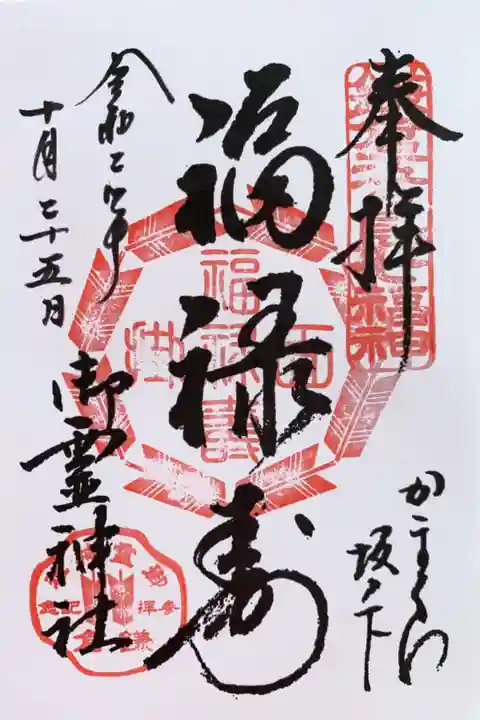 奉拝
かまくら
坂ノ下
福禄寿
令和二年
十月二十五日
御霊神社
福禄壽
面
掛
参拝記念
鎌倉